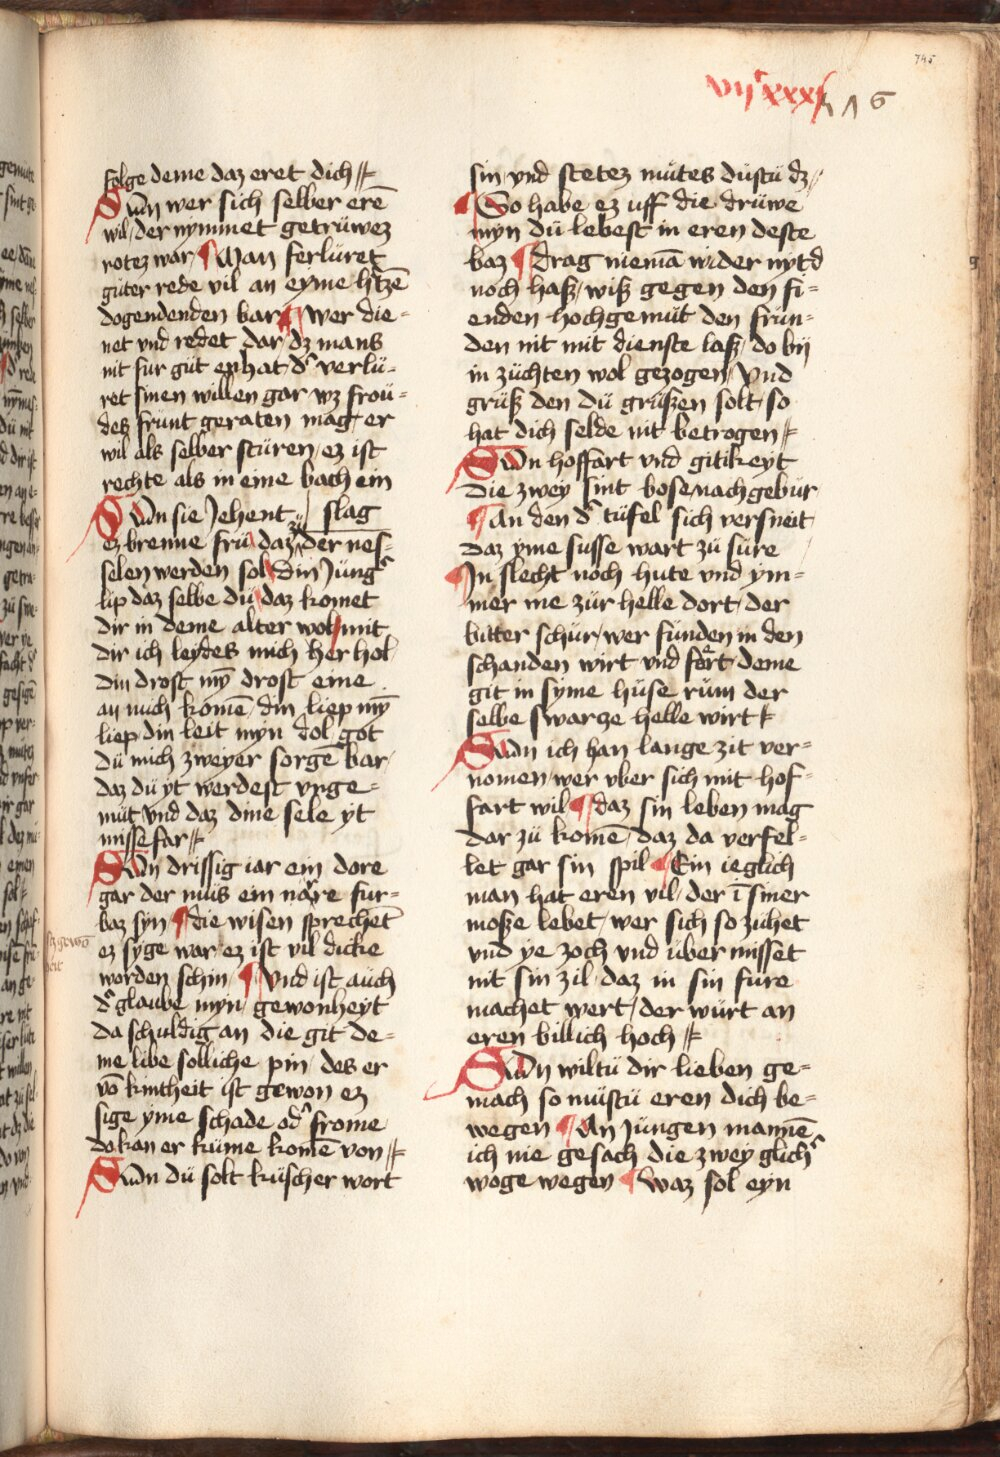 745
vijᶜxxxj
216
folge deme daz eret dich
Sūn wer sich selber erē
wil / der nymmet getrüwez
rotez war / ¶ Man ferlüret
güter rede vil an eyme h'tzē
dogendenden bar ¶ wer die=
net vnd redet dar dz mans
nit fur güt enhat d' verlü=
ret sinen willen gar wz frou=
des frünt geraten mag / er
wil als selber stüren / ez ist
rechte als in eine bach ein
Sūn sie Jehent zu slag
ez brenne frü daz der nes=
selen werden sol din Jung'
lip daz selbe dü daz komet
dir in deme alter wol mit
dir ich leydes mich her hol
din drost mȳ drost eine
an mich komē / din liep mȳ
liep / din leit myn dol got
dü mich zweyer sorgē bar /
daz dü yt werdest vnge=
müt vnd daz dine sele yt
missefar
Sūn drissig iar ein dore
gar der müs ein nare fur=
baz syn / ¶ die wisen sprechet
ez syge war / ez ist vil dicke
worden schin ¶ Vnd ist auch
d' glaube myn / gewonheyt
da schuldig an die git de=
me libe solliche pin / des er
vō kintheit ist gewon ez
sige yme schade od' frome
do kan er küme komē von
Sūn dü solt küscher wort
sin / vnd stetez mütes düstü dz
¶ So habe ez uff die drüwe
myn dü lebest in eren deste
baz ¶ drag niemā wider nytd
noch hasz / wisz gegen den fi=
enden hochgemüt den frün=
den nit mit dienste lasz / do bij
in züchten wol gezogen / Vnd
grüsz den dü grüszen solt / so
hat dich selde nit betrogen
Sūn hoffart vnd gitikeyt
die zwey sint bose nachgebür
¶ An den d' tüfel sich versneit
daz yme susse wart zü süre
Jn slecht noch hute vnd ym=
mer me zür helle dort / der
bitter schür / wer fünden in den
schanden wirt vnd fort deme
git in syme hüse rüm der
selbe swarze helle wirt
Sūn ich han lange zit ver=
nomen / wer vber sich mit hof=
fart wil ¶ daz sin leben mag
dar zü komē / daz da verfel=
let gar sin spil ¶ Ein ieglich
man hat eren vil / der ī siner
mosze lebet / wer sich so zühet
vnd ye zoch vnd über misset
nit sin zil / daz in sin fure
machet wert / der würt an
eren billich hoch
Sūn wiltü dir lieben ge=
mach so müstü eren dich be=
wegen ¶ An Jungen mannē
ich nie gesach die zwey glich'
woge wegen ¶ Waz sol eyn